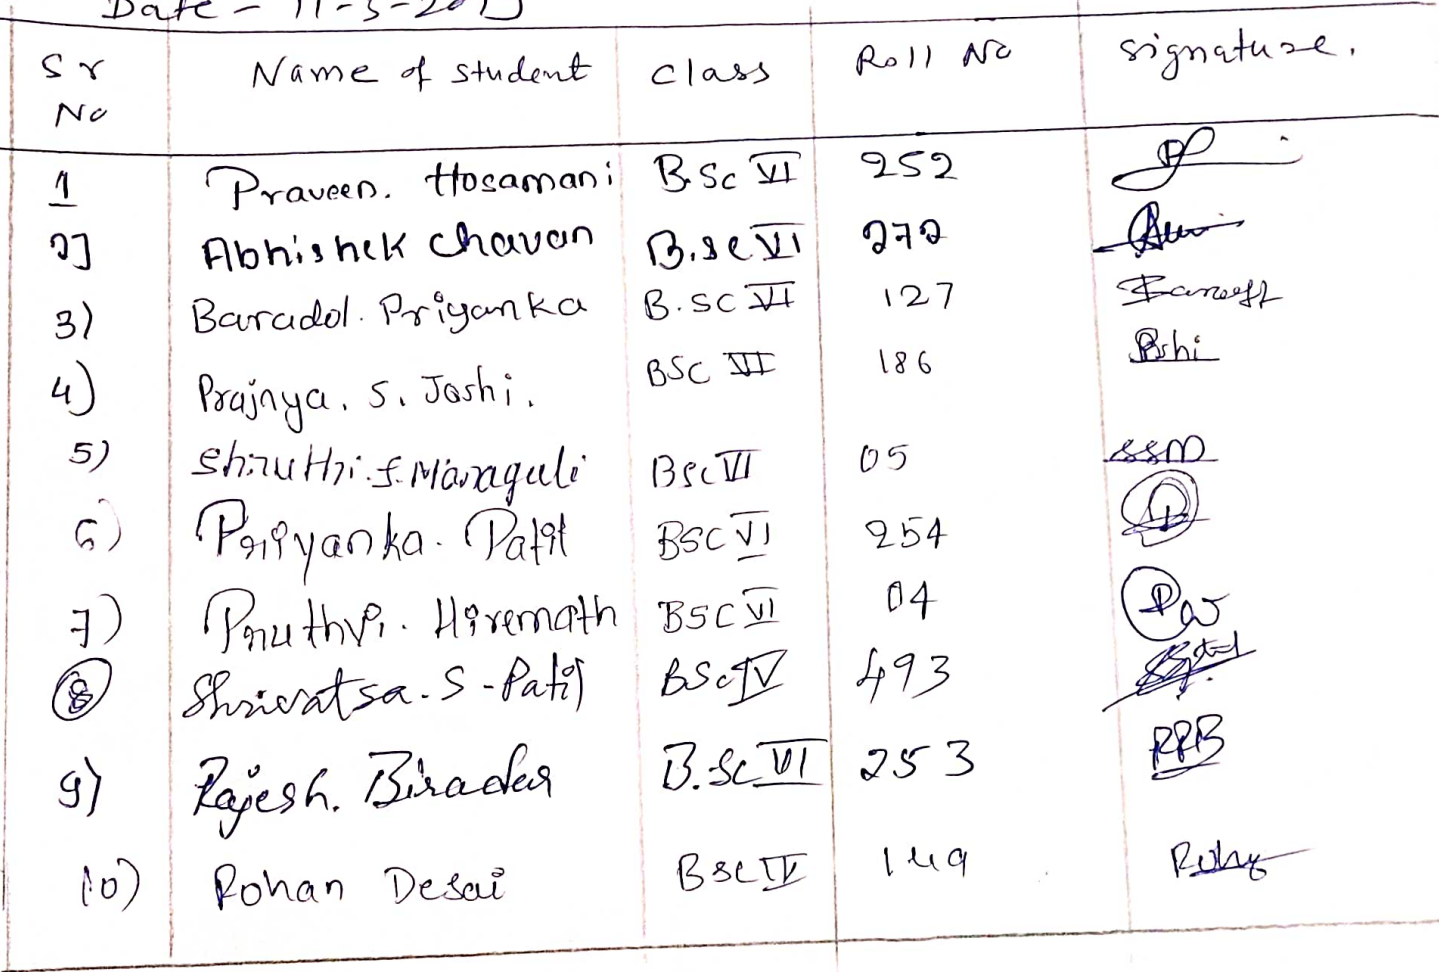 Date - 11-5-2015
Sr No Name of student class Roll No signature.
1 Praveen. Hosamani B.Sc VI 252
2] Abhishek chavan B.sc VI 272
3) Baradol. Priyanka B.SC VI 127
4) Prajnya. S. Joshi. BSC VI 186 Pshi
5) Shruthi.S.Managuli BSc VI 05 SSM
6) Priyanka. Patil BSC VI 254 P
7) Pruthvi. Hiremath BSC VI 04
8 Shrivatsa.S-Patil BSc IV 493
9) Rajesh. Biradar B.Sc VI 253 RRB
10) Rohan Desai BSc IV 149